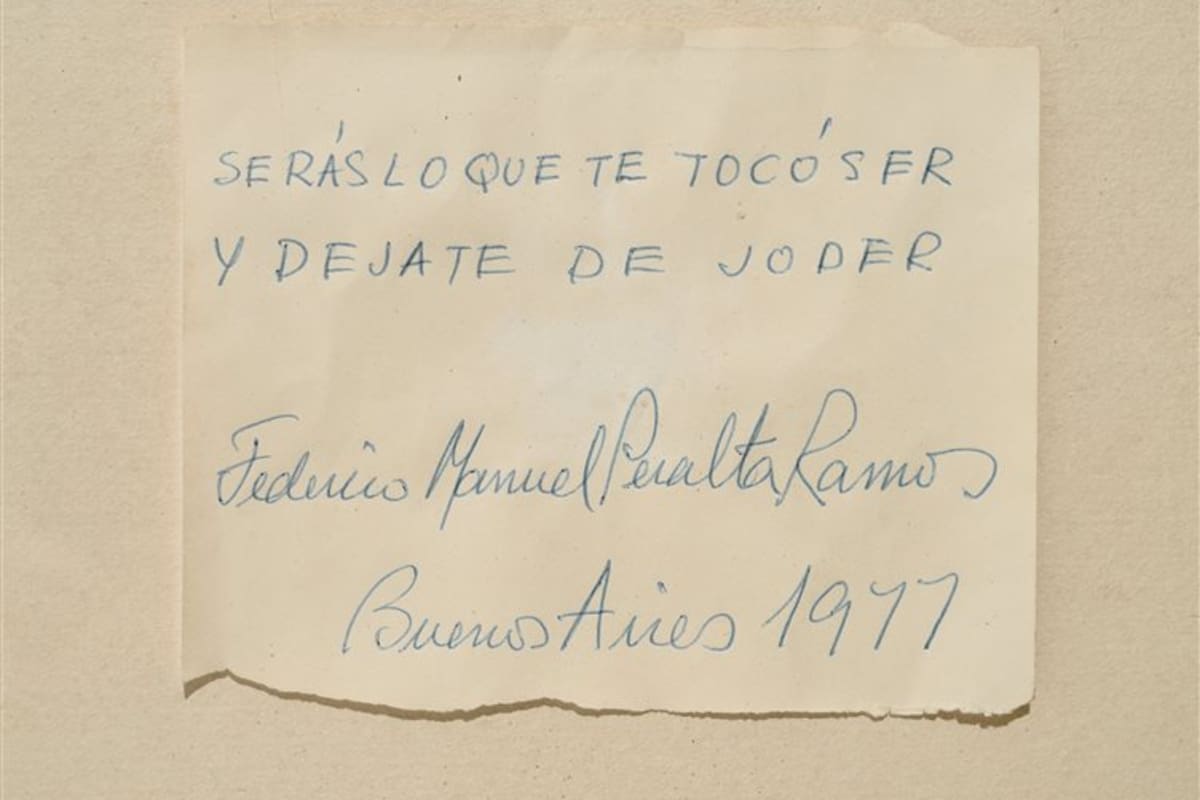 SERÁS LO QUE TE TOCÓ SER
Y DEJATE DE JODER
Federico Manuel Peralta Ramos
Buenos Aires 1977